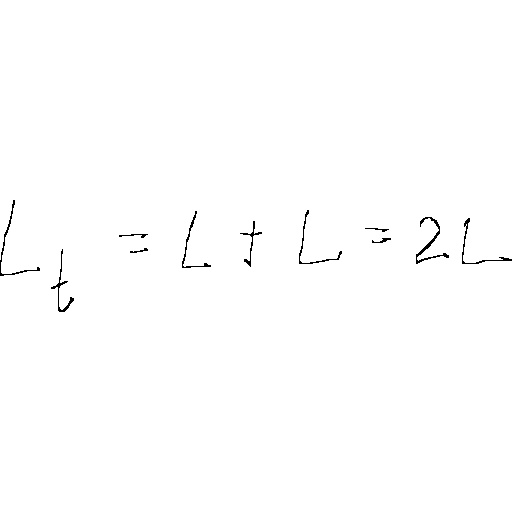 L_t = L + L = 2L